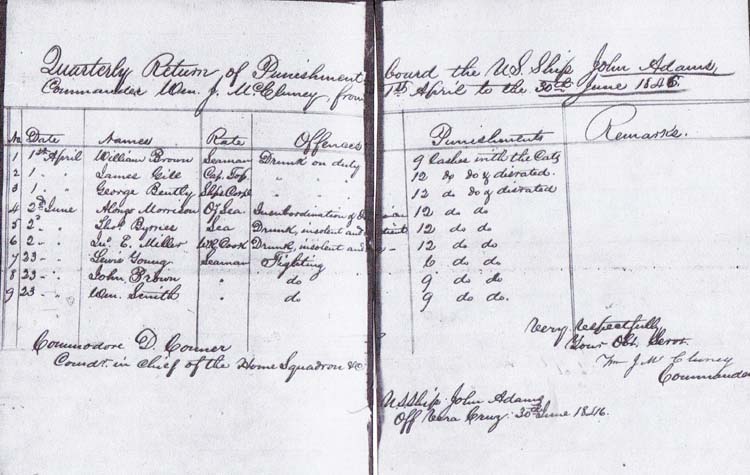 Quarterly Return of Punishment board the U.S. Ship John Adams,
Commander Wm. J. McCluney, from 1st April to the 30th June 1846.
No. Date Names Rate Offences Punishments Remarks.
1 1st April William Brown Seaman Drunk on duty 9 Lashes with the Cats
2 1. " James Gill Cap. Top " " 12 do do & disrated.
3 1. " George Bently Ships Cook " " 12 do do & disrated
4 2d June Alonzo Morrison O. Sea Insubordination & 12 do do
5 2. " Thos. Byrnes Sea Drunk, insolent and 12 do do
6 2. " Jno. E. Miller W.R. Cook Drunk, insolent and 12 do do
7 23 - . Lewis Young Seaman Fighting 6 do do
8 23 - . John Brown " do 9 do do.
9 23 - . Wm. Smith " do 9 do do.
Commodore D. Conner
Comdr. in Chief of the Home Squadron &c
Very respectfully
Your Obt. Servt.
Wm J. McCluney
Commander
U.S. Ship John Adams
Off Vera Cruz 30th June 1846.